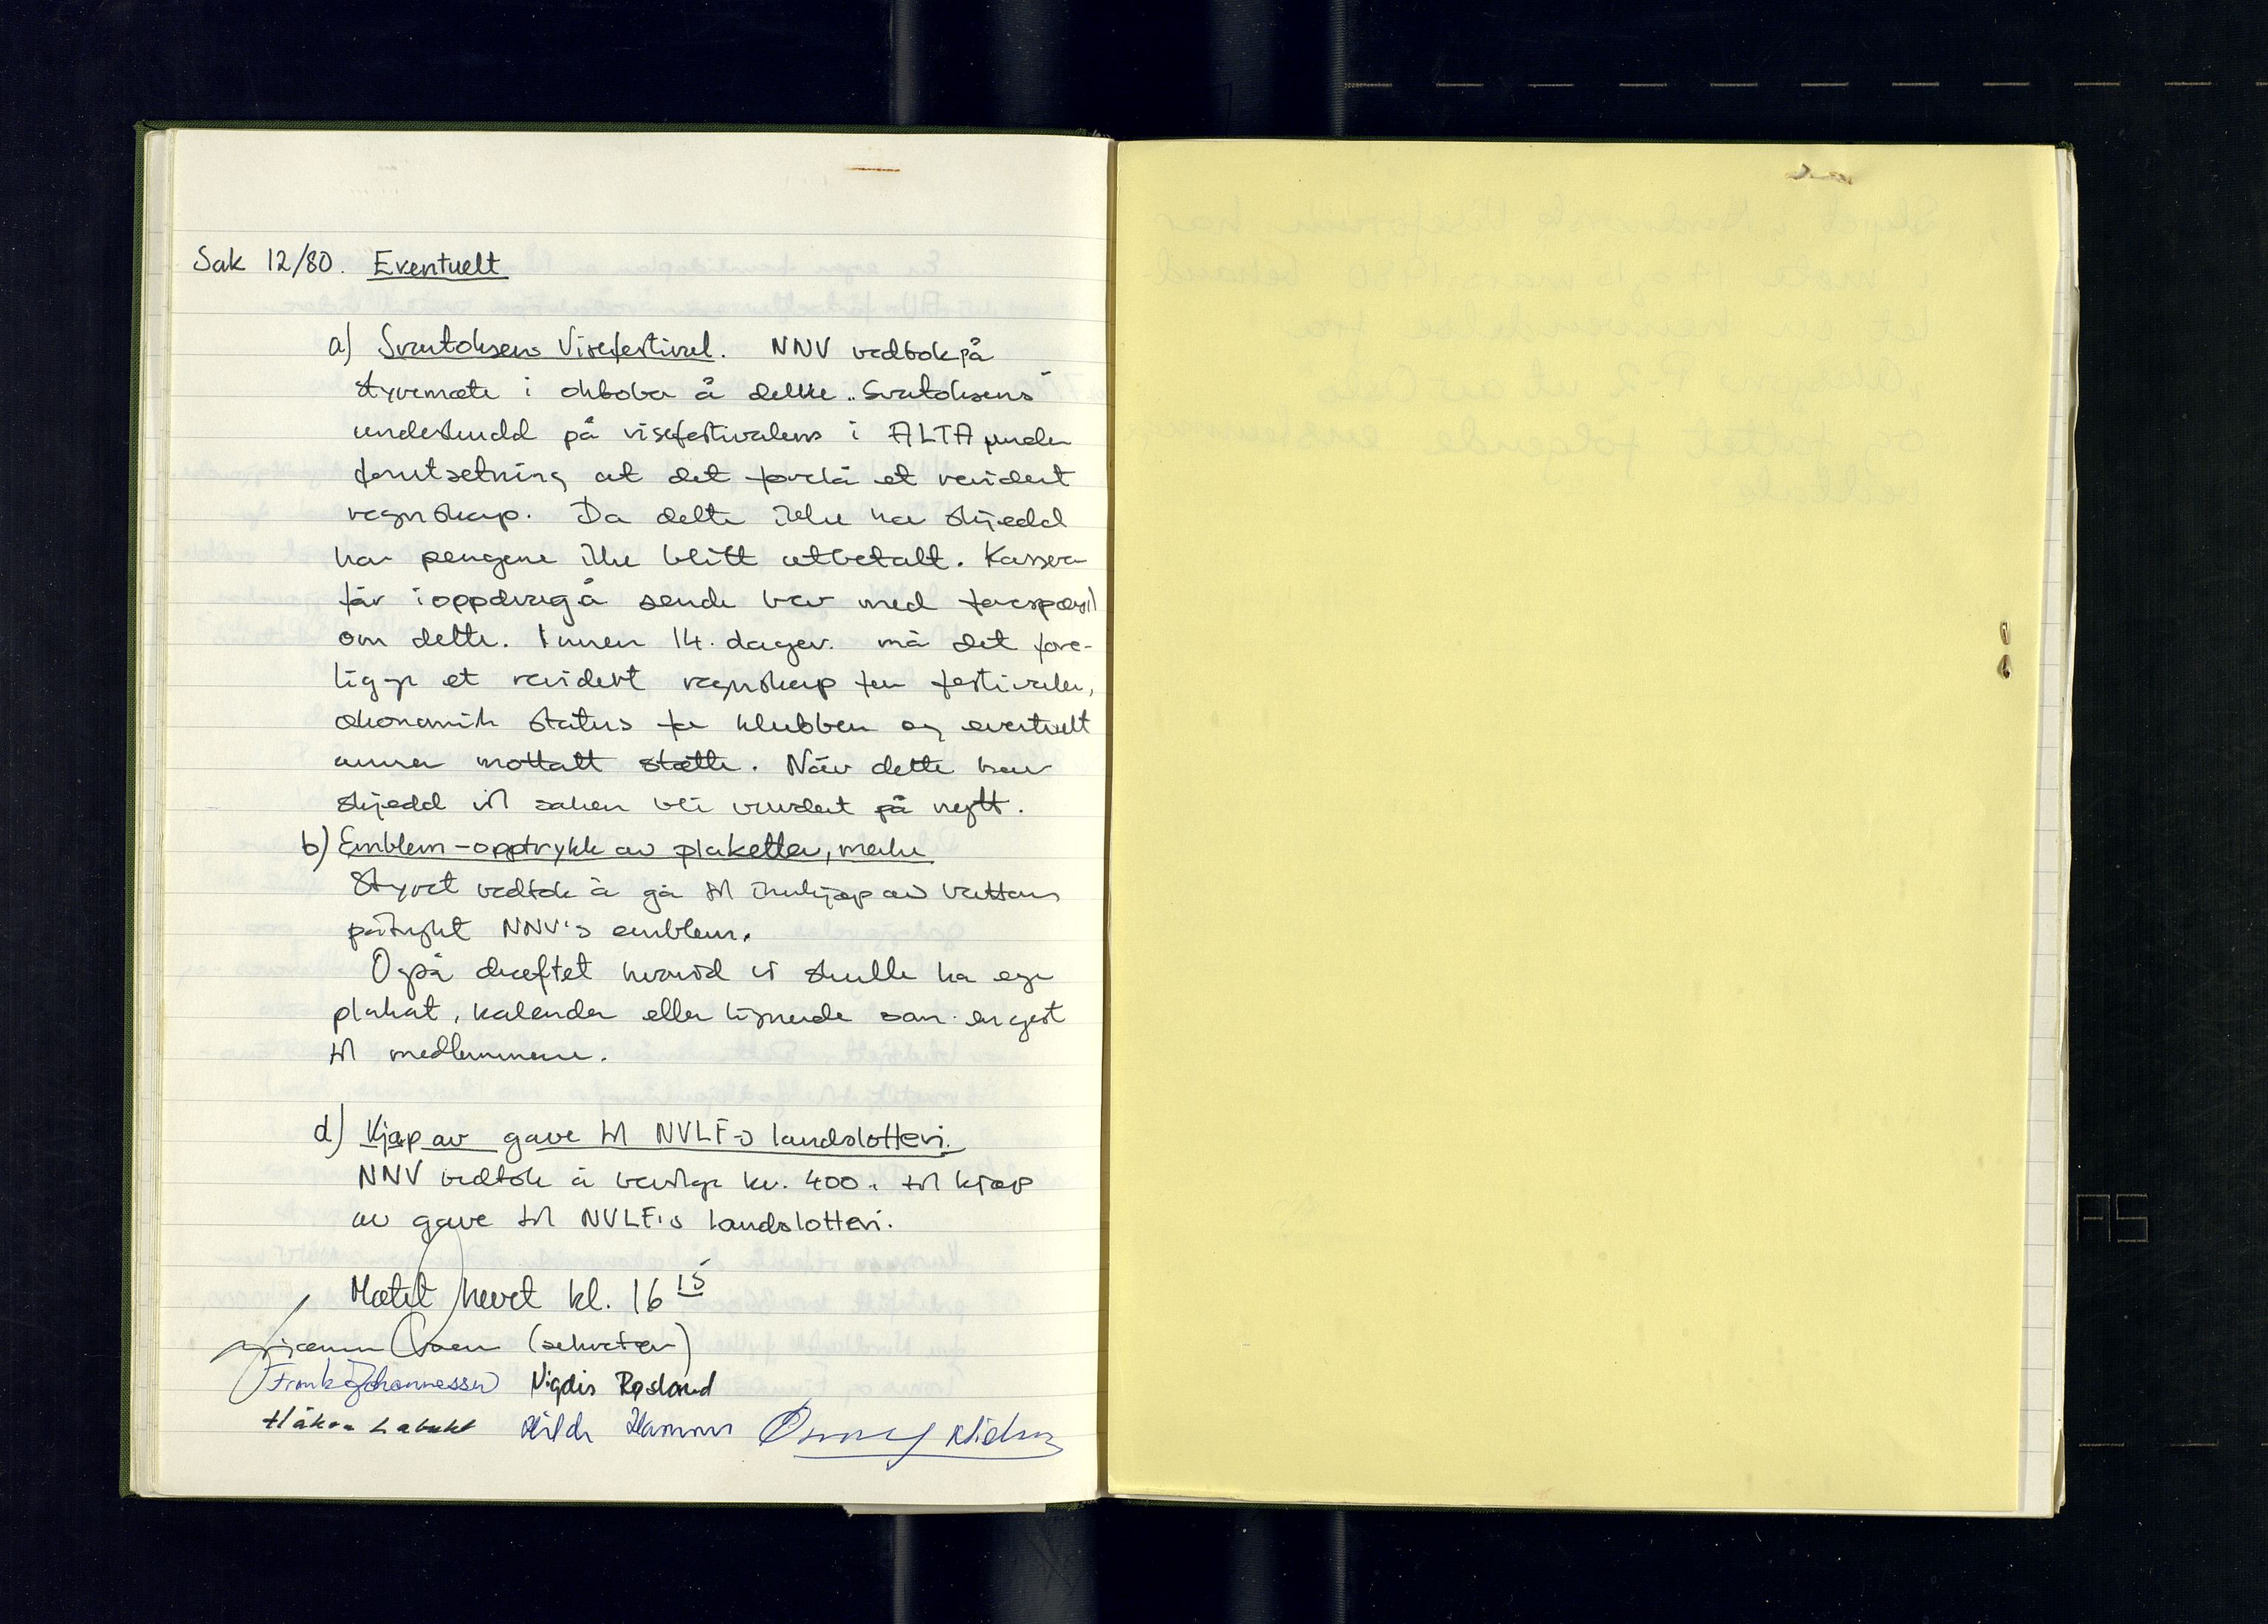 Sak 12/80. Eventuelt
a) Svartoksens Visefestival. NNV vedtok på
styremøte i oktober å dekke "Svartoksens"
underskudd på visefestivalens i ALTA under
forutsetning at det forelå et revidert
regnskap. Da dette ikke har skjedd
har pengene ikke blitt utbetalt. Kasserer
får i oppdrag å sende brev med forespørsel
om dette. Innen 14. dager. må det fore-
ligge et revidert regnskap for festivalen,
økonomisk status for klubben og eventuelt
annen mottatt støtte. Når dette har
skjedd vil saken bli vurdert på nytt.
b) Emblem - opptrykk av plaketter, merke
Styret vedtok å gå til innkjøp av
påtrykt NNV's emblem.
Også drøftet hvorvid vi skulle ha egen
plakat, kalender eller lignende som en gest
til medlemmene.
d) Kjøp av gave til NVLF-s landslotteri.
NNV vedtok å bevilge kr. 400.- til kjøp
av gave til NVLF's landslotteri.
Møtet hevet kl. 16 15
(sekretær)
Frank Johannessen Vigdis Røsland
Håkon Hilde Hammer
AS